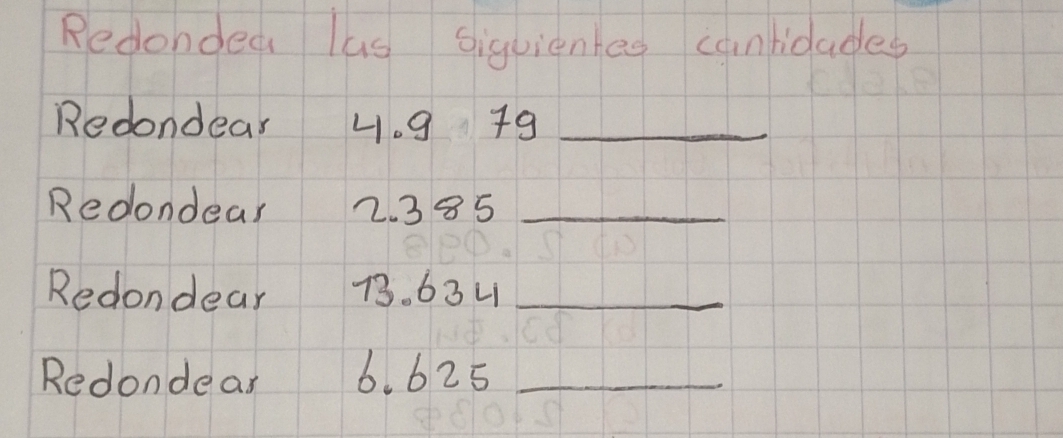 Redondea las siguientes cantidades
Redondear 4.9 79 ________
Redondear 2.385 ________
Redondear 13.634 ________
Redondear 6.625 ________